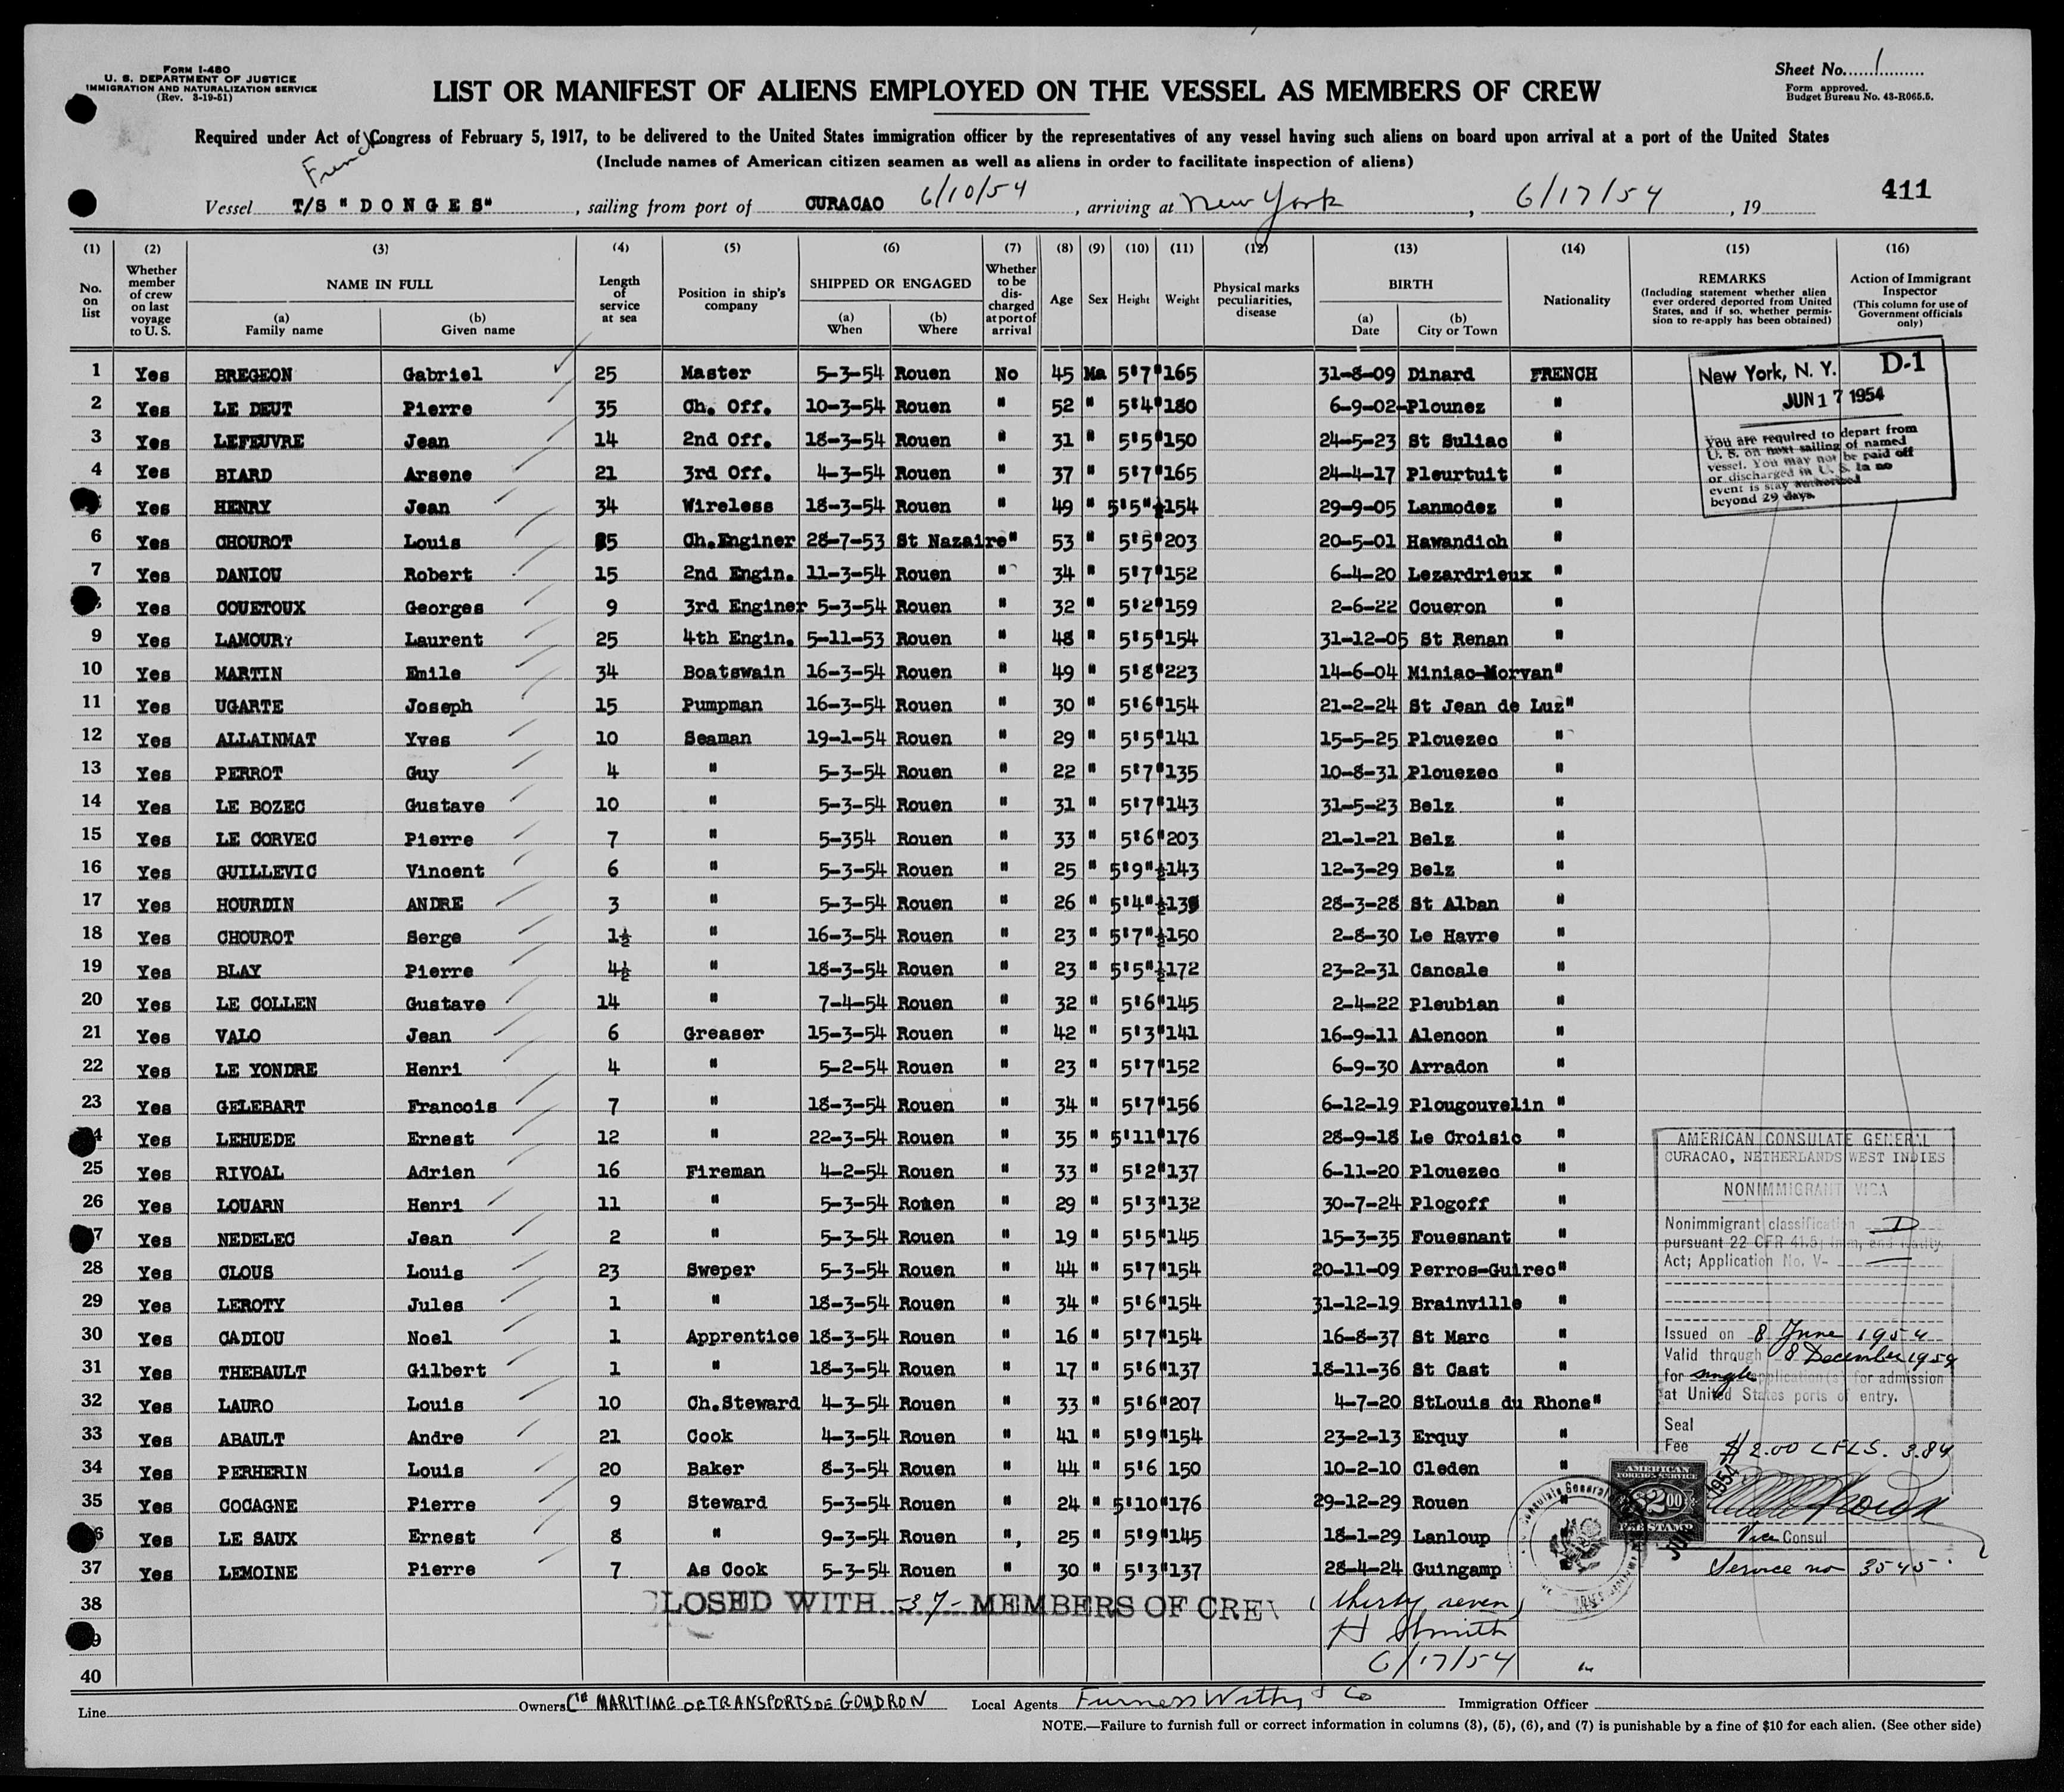 Form I-480
U. S. DEPARTMENT OF JUSTICE
IMMIGRATION AND NATURALIZATION SERVICE
(Rev. 3-19-51)
Sheet No. 1
Form approved.
Budget Bureau No. 43-R065.5.
LIST OR MANIFEST OF ALIENS EMPLOYED ON THE VESSEL AS MEMBERS OF CREW
Required under Act of Congress of February 5, 1917, to be delivered to the United States immigration officer by the representatives of any vessel having such aliens on board upon arrival at a port of the United States
(Include names of American citizen seamen as well as aliens in order to facilitate inspection of aliens)
French
Vessel T/S "DONGES", sailing from port of CURACAO 6/10/54, arriving at New York, 6/17/54, 19
411
(1) (2) (3) (4) (5) (6) (7) (8) (9) (10) (11) (12) (13) (14) (15) (16)
No. on list
Whether member of crew on last voyage to U. S.
NAME IN FULL
(a) Family name
(b) Given name
Length of service at sea
Position in ship's company
SHIPPED OR ENGAGED
(a) When
(b) Where
Whether to be discharged at port of arrival
Age
Sex
Height
Weight
Physical marks peculiarities, disease
BIRTH
(a) Date
(b) City or Town
Nationality
REMARKS
(Including statement whether alien ever ordered deported from United States, and if so, whether permission to re-apply has been obtained)
Action of Immigrant Inspector
(This column for use of Government officials only)
1 Yes BREGEON Gabriel 25 Master 5-3-54 Rouen No 45 Ma 5'7" 165 31-8-09 Dinard FRENCH
2 Yes LE DEUT Pierre 35 Ch. Off. 10-3-54 Rouen " 52 " 5'4" 180 6-9-02 Plounez "
3 Yes LEFEUVRE Jean 14 2nd Off. 18-3-54 Rouen " 31 " 5'5" 150 24-5-23 St Suliac "
4 Yes BIARD Arsene 21 3rd Off. 4-3-54 Rouen " 37 " 5'7" 165 24-4-17 Pleurtuit "
Yes HENRY Jean 34 Wireless 18-3-54 Rouen " 49 " 5'5"½ 154 29-9-05 Lanmodez "
6 Yes CHOUROT Louis 25 Ch.Enginer 28-7-53 St Nazaire " 53 " 5'5" 203 20-5-01 Hawandich "
7 Yes DANIOU Robert 15 2nd Engin. 11-3-54 Rouen " 34 " 5'7" 152 6-4-20 Lezardrieux "
Yes COUETOUX Georges 9 3rd Enginer 5-3-54 Rouen " 32 " 5'2" 159 2-6-22 Coueron "
9 Yes LAMOURY Laurent 25 4th Engin. 5-11-53 Rouen " 48 " 5'5" 154 31-12-05 St Renan "
10 Yes MARTIN Emile 34 Boatswain 16-3-54 Rouen " 49 " 5'8" 223 14-6-04 Miniac-Morvan "
11 Yes UGARTE Joseph 15 Pumpman 16-3-54 Rouen " 30 " 5'6" 154 21-2-24 St Jean de Luz "
12 Yes ALLAINMAT Yves 10 Seaman 19-1-54 Rouen " 29 " 5'5" 141 15-5-25 Plouezec "
13 Yes PERROT Guy 4 " 5-3-54 Rouen " 22 " 5'7" 135 10-8-31 Plouezec "
14 Yes LE BOZEC Gustave 10 " 5-3-54 Rouen " 31 " 5'7" 143 31-5-23 Belz "
15 Yes LE CORVEC Pierre 7 " 5-354 Rouen " 33 " 5'6" 203 21-1-21 Belz "
16 Yes GUILLEVIC Vincent 6 " 5-3-54 Rouen " 25 " 5'9"½ 143 12-3-29 Belz "
17 Yes HOURDIN ANDRE 3 " 5-3-54 Rouen " 26 " 5'4"½ 28-3-28 St Alban "
18 Yes CHOUROT Serge 1½ " 16-3-54 Rouen " 23 " 5'7"½ 150 2-8-30 Le Havre "
19 Yes BLAY Pierre 4½ " 18-3-54 Rouen " 23 " 5'5"½ 172 23-2-31 Cancale "
20 Yes LE COLLEN Gustave 14 " 7-4-54 Rouen " 32 " 5'6" 145 2-4-22 Pleubian "
21 Yes VALO Jean 6 Greaser 15-3-54 Rouen " 42 " 5'3" 141 16-9-11 Alencon "
22 Yes LE YONDRE Henri 4 " 5-2-54 Rouen " 23 " 5'7" 152 6-9-30 Arradon "
23 Yes GELEBART Francois 7 " 18-3-54 Rouen " 34 " 5'7" 156 6-12-19 Plougouvelin "
4 Yes LEHUEDE Ernest 12 " 22-3-54 Rouen " 35 " 5'11" 176 28-9-18 Le Croisic "
25 Yes RIVOAL Adrien 16 Fireman 4-2-54 Rouen " 33 " 5'2" 137 6-11-20 Plouezec "
26 Yes LOUARN Henri 11 " 5-3-54 Rouen " 29 " 5'3" 132 30-7-24 Plogoff "
7 Yes NEDELEC Jean 2 " 5-3-54 Rouen " 19 " 5'5" 145 15-3-35 Fouesnant "
28 Yes CLOUS Louis 23 Sweper 5-3-54 Rouen " 44 " 5'7" 154 20-11-09 Perros-Guirec "
29 Yes LEROTY Jules 1 " 18-3-54 Rouen " 34 " 5'6" 154 31-12-19 Brainville "
30 Yes CADIOU Noel 1 Apprentice 18-3-54 Rouen " 16 " 5'7" 154 16-8-37 St Marc "
31 Yes THEBAULT Gilbert 1 " 18-3-54 Rouen " 17 " 5'6" 137 18-11-36 St Cast "
32 Yes LAURO Louis 10 Ch.Steward 4-3-54 Rouen " 33 " 5'6" 207 4-7-20 StLouis du Rhone "
33 Yes ABAULT Andre 21 Cook 4-3-54 Rouen " 41 " 5'9" 154 23-2-13 Erquy "
34 Yes PERHERIN Louis 20 Baker 8-3-54 Rouen " 44 " 5'6 150 10-2-10 Cleden "
35 Yes COCAGNE Pierre 9 Steward 5-3-54 Rouen " 24 " 5'10" 176 29-12-29 Rouen "
6 Yes LE SAUX Ernest 8 " 9-3-54 Rouen " 25 " 5'9" 145 18-1-29 Lanloup "
37 Yes LEMOINE Pierre 7 As Cook 5-3-54 Rouen " 30 " 5'3" 137 28-4-24 Guingamp "
38 LOSED WITH -37- MEMBERS OF CRE (thirty seven)
9 H Smith
40 6/17/54
New York, N. Y. D-1
JUN 17 1954
You are required to depart from
U. S. on next sailing of named
vessel. You may not be paid off
or discharged in U. S. In no
event is stay authorized
beyond 29 days.
AMERICAN CONSULATE GENERAL
CURACAO, NETHERLANDS WEST INDIES
NONIMMIGRANT VISA
Nonimmigrant classification D
pursuant 22 CFR 41.5; Imm. and Natlty.
Act; Application No. V-
Issued on 8 June 1954
Valid through 8 December 1954
for single application(s) for admission
at United States ports of entry.
Seal
Fee $2.00 LFLS. 3.84
AMERICAN
FOREIGN SERVICE
$2.00
FEE STAMP
1954
Vice Consul
Service no 3545
Line
Owners Cie MARITIME DE TRANSPORTS DE GOUDRON
Local Agents Furness Withy & Co
Immigration Officer
NOTE.—Failure to furnish full or correct information in columns (3), (5), (6), and (7) is punishable by a fine of $10 for each alien. (See other side)